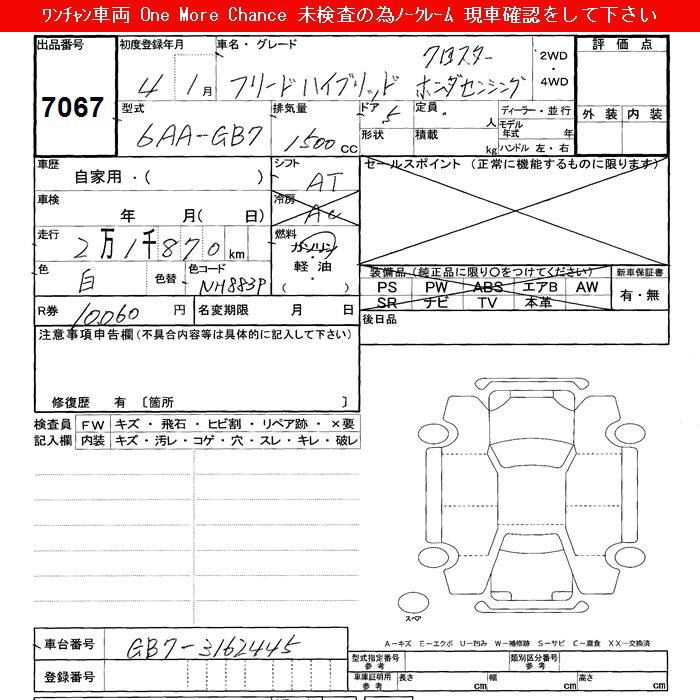 ﾜﾝﾁｬﾝ車両 One More Chance 未検査の為ﾉｰｸﾚｰﾑ 現車確認をして下さい
出品番号 初度登録年月 車名・グレード 評価点
7067 4 1月 フリードハイブリッド クロスター ホンダセンシング 2WD・4WD
型式 排気量 ドア 定員 ディーラー・並行 外装 内装
6AA-GB7 1500cc 5 人 モデル年式 年
形状 積載 kg ハンドル 左・右
車歴 シフト セールスポイント (正常に機能するものに限ります)
自家用・( ) AT
車検 冷房
年 月( 日) AC
走行 燃料
2万1千870km ガソリン・軽油・( )
色 色替 色コード 装備品(純正品に限り○をつけてください) 新車保証書
白 NH883P PS PW ABS エアB AW 有・無
SR ナビ TV 本革
R券 10060円 名変期限 月 日 後日品
注意事項申告欄(不具合内容等は具体的に記入して下さい)
修復歴 有 〔箇所 〕
検査員 FW キズ・飛石・ヒビ割・リペア跡・×要
記入欄 内装 キズ・汚レ・コゲ・穴・スレ・キレ・破レ
スペア
A-キズ E-エクボ U-凹み W-補修跡 S-サビ C-腐食 XX-交換済
車台番号 GB7-3162445 型式指定番号 参考 類別区分番号 参考
登録番号 車庫証明用 参考 長さ cm 幅 cm 高さ cm